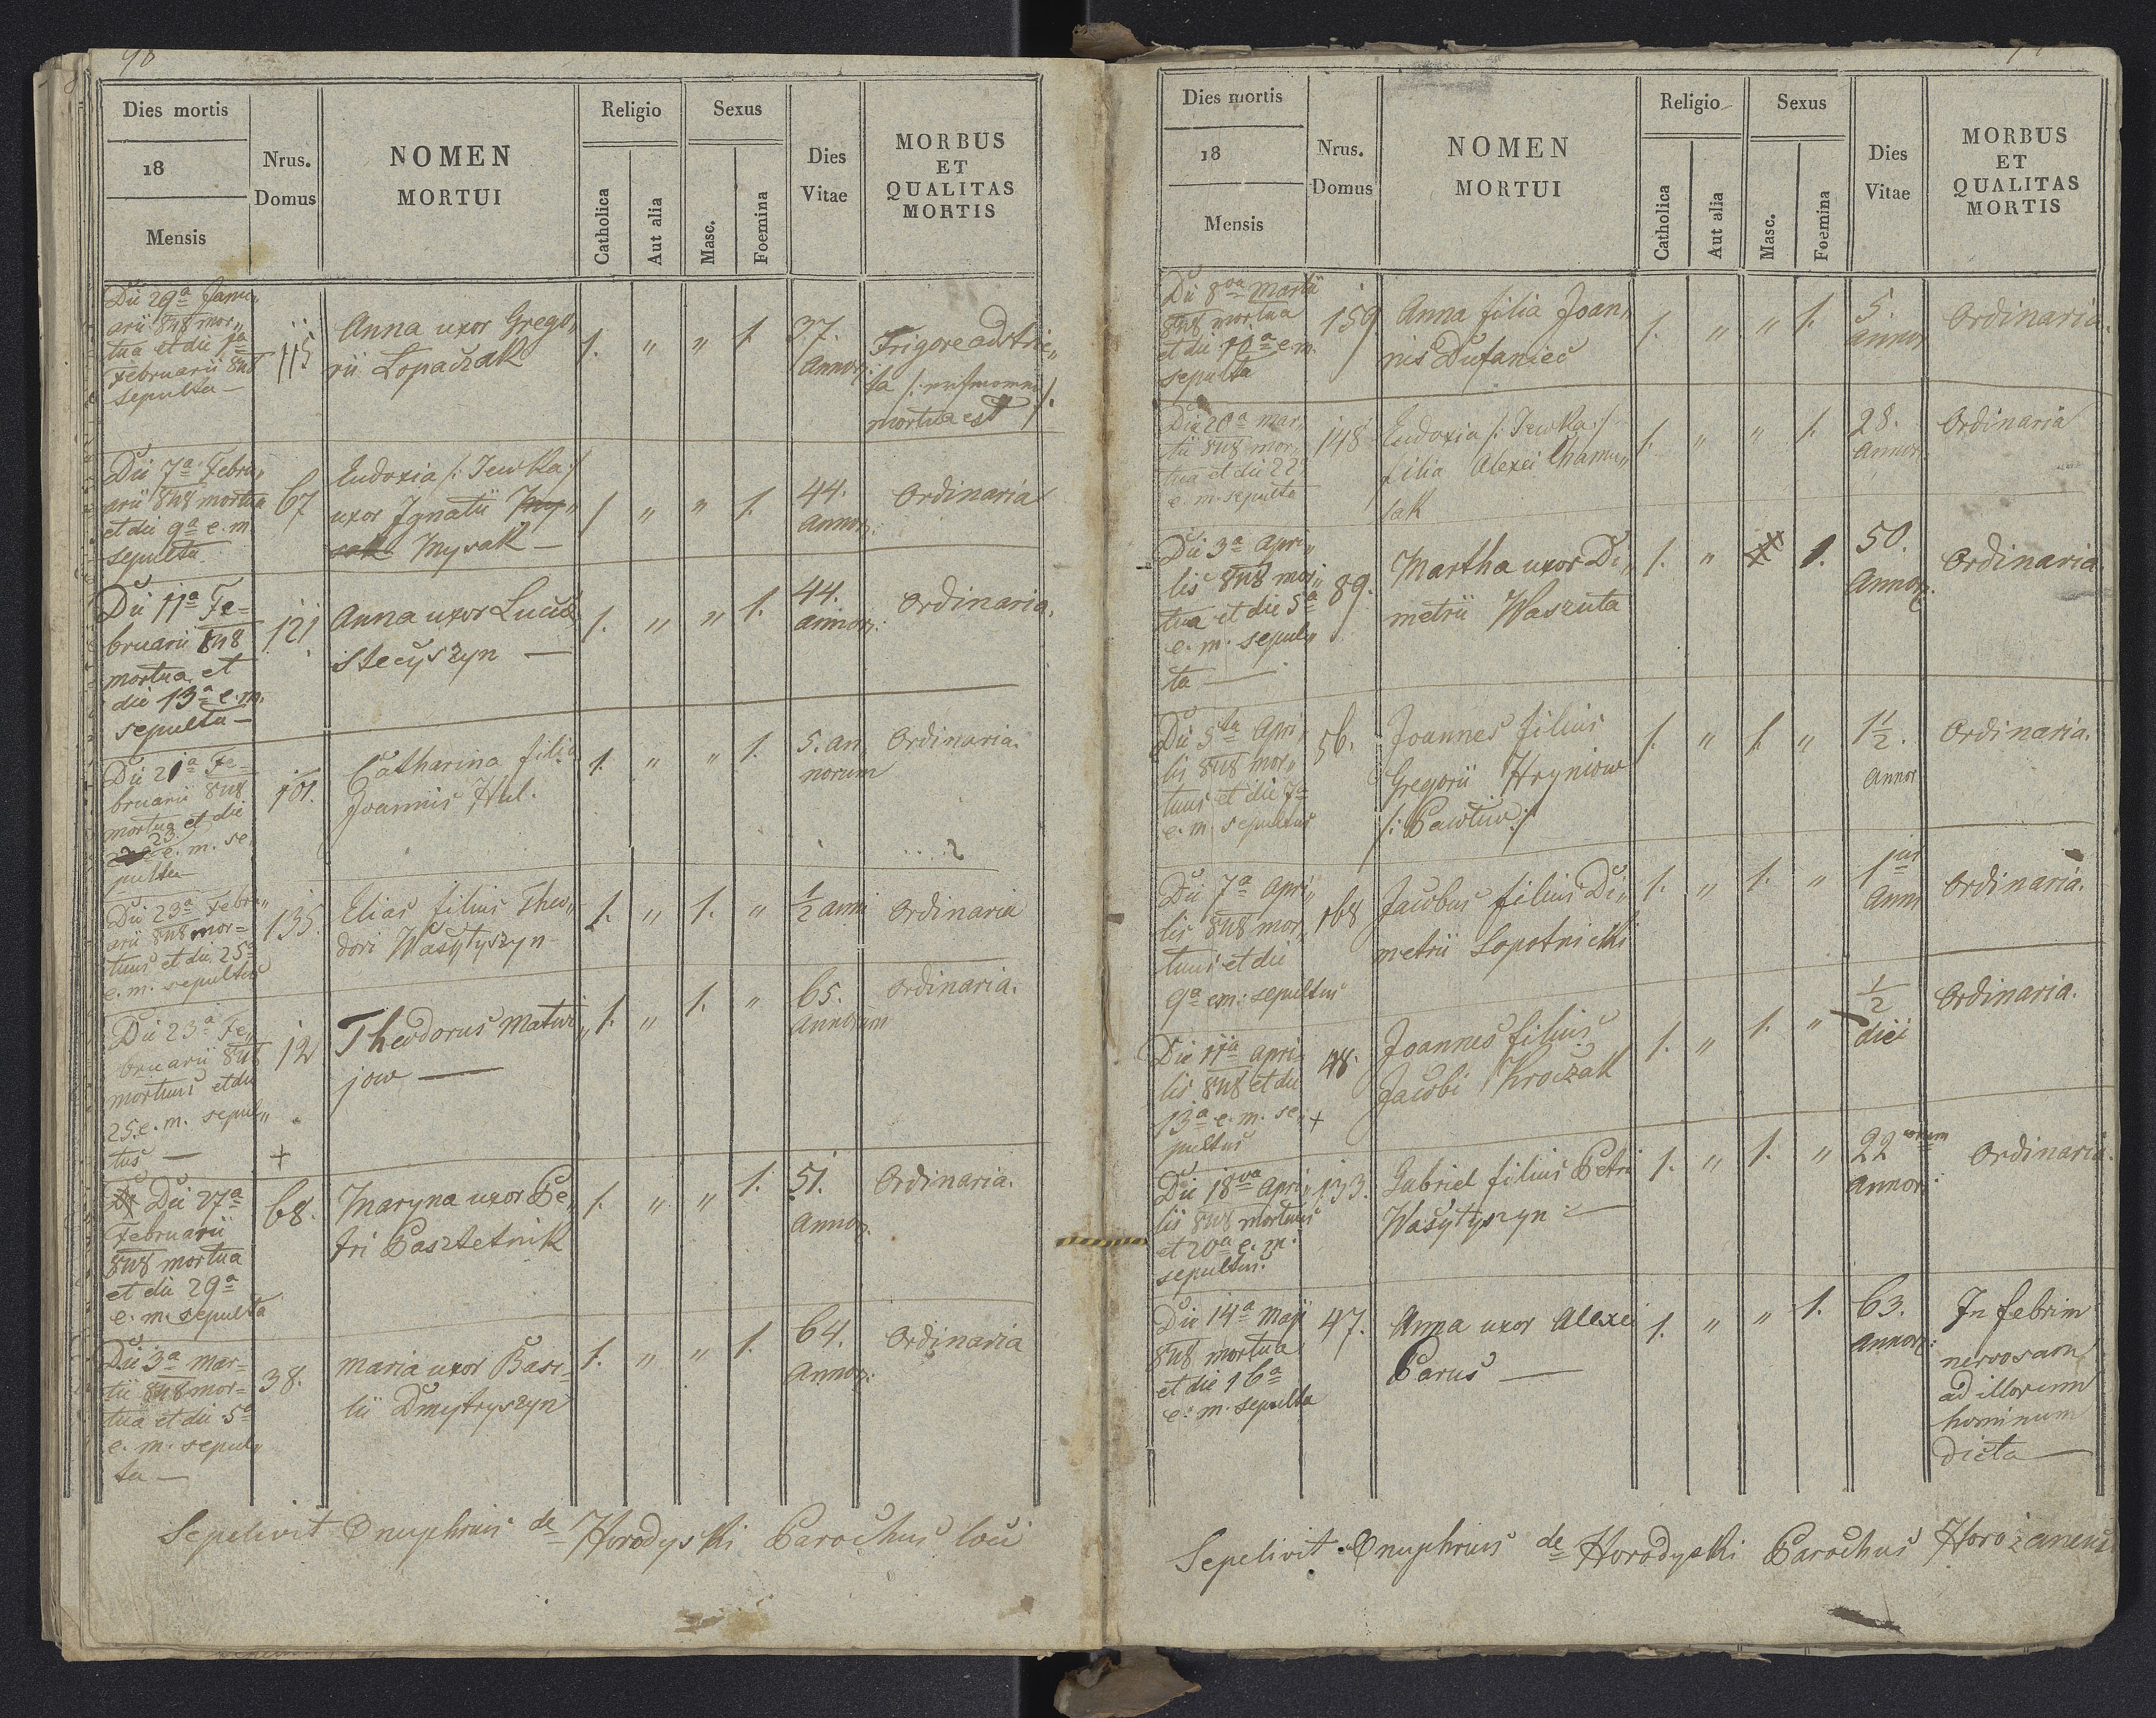 90
Dies mortis
18
Mensis
Nrus.
Domus
NOMEN
MORTUI
Religio
Catholica
Aut alia
Sexus
Masc.
Foemina
Dies
Vitae
MORBUS
ET
QUALITAS
MORTIS
Die 29ª Janu„
arii 848 mor„
tua et die 1ª
Februarii 848
sepulta —
115
Anna uxor Grego„
rii Lopaczak
1. „ „ 1.
37.
Annor:
Frigore adstric„
ta
mortua est /.
Die 7ª Febru„
arii 848 mortua
et die 9ª e. m.
sepulta
67
Eudoxia /: Jewka :/
uxor Ignatii
Mysak —
1 „ „ 1.
44.
Annor:
Ordinaria
Die 11ª Fe=
bruarii 848
mortua et
die 13ª e. m.
sepulta —
121
Anna uxor Lucae
Stecyszyn —
1. „ „ 1.
44.
annor:
Ordinaria.
Die 21ª Fe=
bruarii 848
mortua et die
23 e. m. se„
pulta —
101.
Catharina filia
Joannis Hul.
1. „ „ 1.
5. an
norum
Ordinaria.
Die 23ª Febru„
arii 848 mor=
tuus et die 25ª
e. m. sepultus
135.
Elias filius Theo„
dori Wasylyszyn
1. „ 1. „
1/2 anni
Ordinaria
Die 23ª Fe„
bruarii 848
mortuus et die
25 e. m. sepul„
tus —
12
+
Theodorus Matwi„
jow —
1. „ 1. „
65.
Annorum
Ordinaria.
Die 27ª
Februarii
848 mortua
et die 29ª
e. m. sepulta
68.
Maryna uxor Pe„
tri Pasztetnik
1. „ „ 1.
51.
Annor:
Ordinaria.
Die 3ª Mar=
tii 848 mor=
tua et die 5ª
e. m. sepul„
ta —
38.
Maria uxor Basi=
lii Dmytryszyn
1. „ „ 1.
64.
Annor:
Ordinaria
Sepelivit Onuphrius de Horodyski Parochus loci
Dies mortis
18
Mensis
Nrus.
Domus
NOMEN
MORTUI
Religio
Catholica
Aut alia
Sexus
Masc.
Foemina
Dies
Vitae
MORBUS
ET
QUALITAS
MORTIS
Die 8va Martii
848 mortua
et die 10ª e. m.
sepulta
159
Anna filia Joan„
nis Dufaniec
1. „ „ 1.
5.
annor
Ordinaria.
Die 20ª Mar„
tii 848 mor„
tua et die 22ª
e. m. sepulta
148
Eudoxia /: Jewka :/
filia Alexei Chamu„
lak
1. „ „ 1.
28.
Annor.
Ordinaria
Die 3ª Apri„
lis 848 mor„
tua et die 5ª
e. m. sepul„
ta —
89.
Martha uxor Di„
metrii Waszuta
1. „ 1.
50.
Annor:
Ordinaria.
Die 5ta Apri„
lis 848 mor„
tuus et die 7ª
e. m. sepultus
56.
Joannes filius
Gregorii Hryniow
/: Pawliw :/
1. „ 1. „
1 1/2.
Annor
Ordinaria.
Die 7ª Apri„
lis 848 mor„
tuus et die
9ª em: sepultus
168
Jacobus filius Di„
metrii Lopotnicki
1. „ 1. „
1jus
Anni
Ordinaria.
Die 11ª Apri„
lis 848 et die
13ª e. m. se„
pultus
48.
+
Joannes filius
Jacobi Kroczak
1. „ 1. „
1/2
diei
Ordinaria.
Die 18va Apri„
lis 848 mortuus
et 20ª e. m.
sepultus.
133.
Gabriel filius Petri
Wasylyszyn —
1. „ 1. „
22 orum
Annor:
Ordinaria.
Die 14ª Maji
848 mortua
et die 16ª
e. m. sepulta
47.
Anna uxor Alexei
Parus —
1. „ „ 1.
63.
Annor:
In febrim
nervosam
ad illorum
hominum
dicta —
Sepelivit Onuphrius de Horodyski Parochus Horożanens